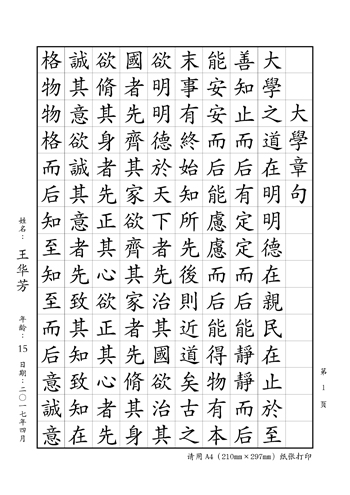 大學章句
大學之道在明明德在親民在止於至
善知止而后有定定而后能靜靜而后
能安安而后能慮慮而后能得物有本
末事有終始知所先後則近道矣古之
欲明明德於天下者先治其國欲治其
國者先齊其家欲齊其家者先脩其身
欲脩其身者先正其心欲正其心者先
誠其意欲誠其意者先致其知致知在
格物物格而后知至知至而后意誠意
姓名：王华芳 年龄：15 日期：二〇一七年四月
第 1 页
请用A4（210mm×297mm）纸张打印